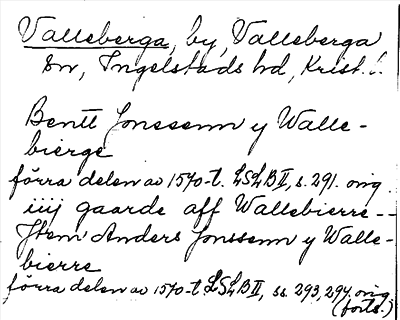 Valleberga, by, Valleberga
sn, Ingelstads hd, Krist. l.
Bentt Jonssenn y Walle-
bierge
förra delen av 1570-t. LSLB II, s. 291. orig.
iiij gaarde aff Wallebierre--
Jtem Anders Jonssenn y Walle-
bierre
förra delen av 1570-t LSLB II, ss. 293, 294. orig
(forts.)